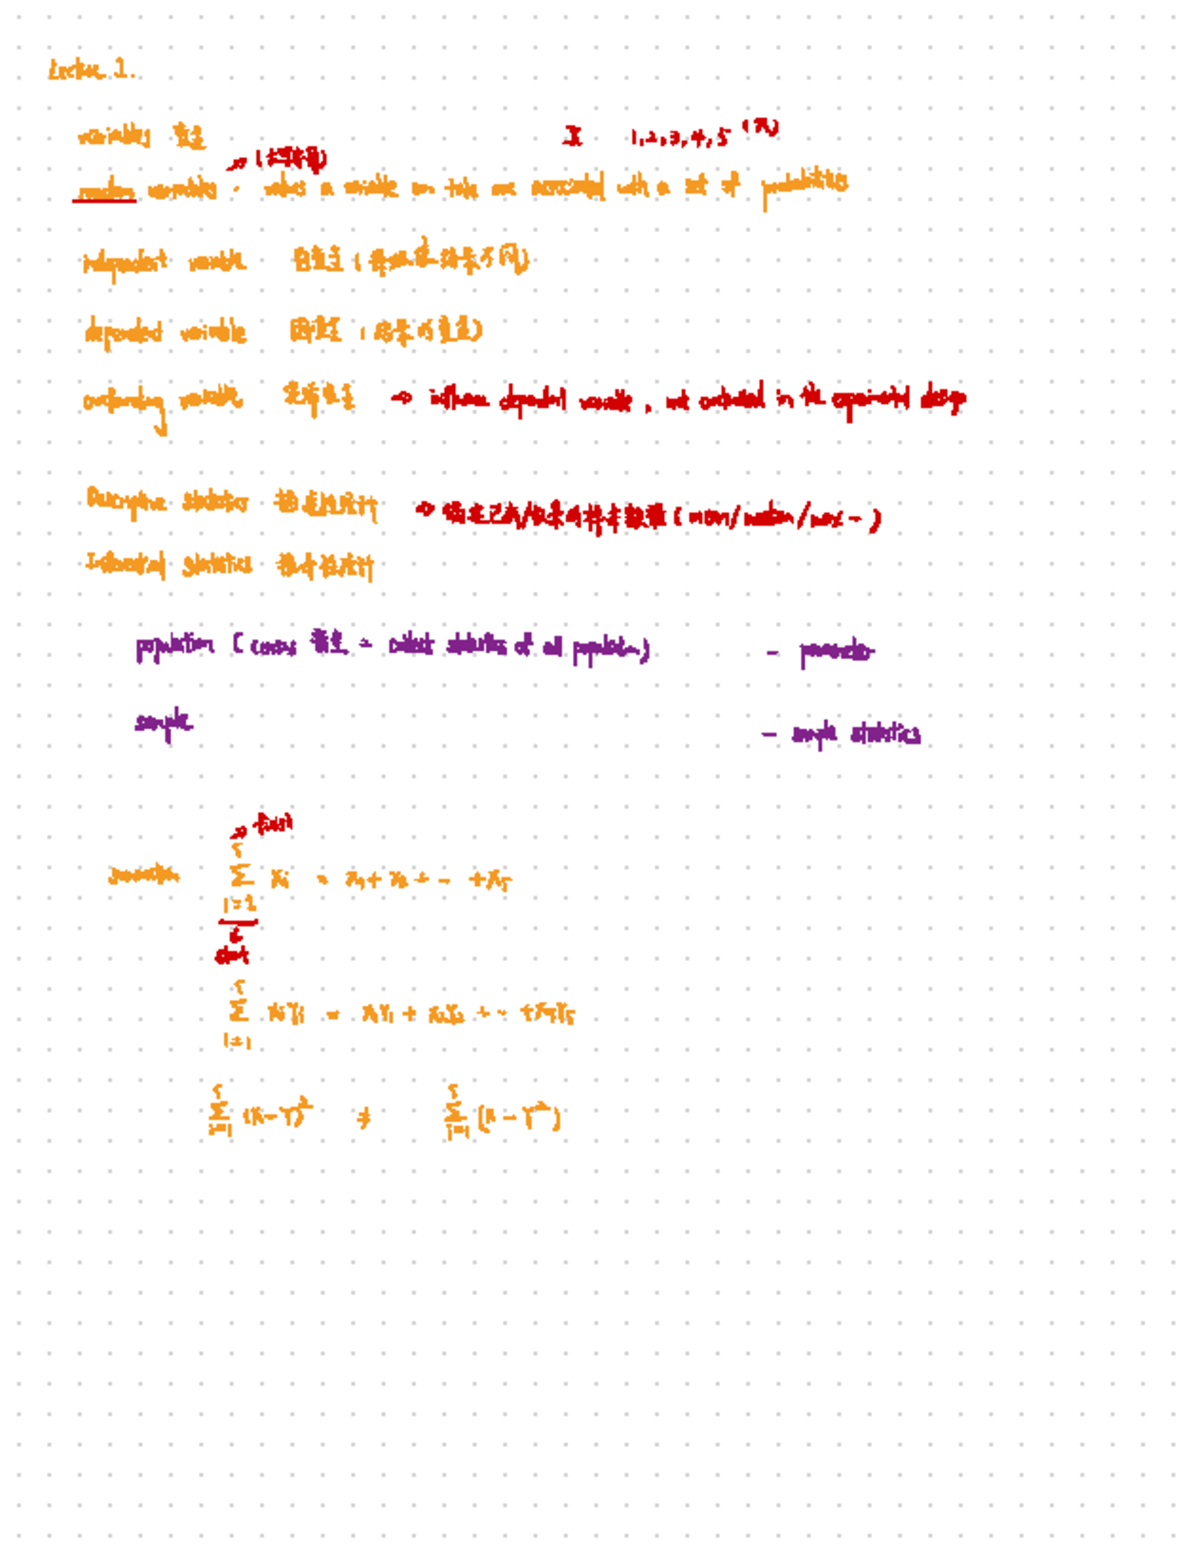 Lecture 1.
variables 变量 X 1,2,3,4,5 (xi)
random variables . values a variable can take are associated with a set of probabilities
independent variable 自变量 ( 结果不同)
dependent variable 因变量 (结果的变量)
confounding variable 变量 → influence dependent variable, not controlled in the experimental design
Descriptive statistics 描述性统计 → 样本数据 (mean/median/max - )
Inferential statistics 统计
population [census 普查 = collect statistics of all population) - parameter
sample - sample statistics
→ finish
summation 5 Σ i=1 xi = x1 + x2 + - + x5
start
5 Σ i=1 xiYi = x1Y1 + x2Y2 + - + x5Y5
5 Σ i=1 (x-Y)² ≠ 5 Σ i=1 (x - Y²)